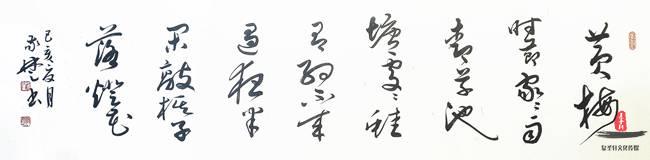 黄梅
时节家々雨
青草池
塘处々蛙
有约不来
过夜半
闲敲棋子
落燈花
己亥夏月
书
文化传媒